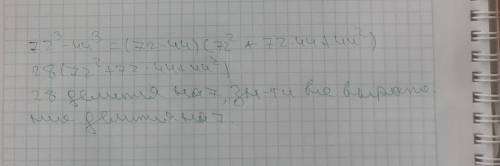 72³-44³=(72-44)(72²+72·44+44²)
28(72²+72·44+44²)
28 делится на 7, зн-ти все выраже
ние делится на 7